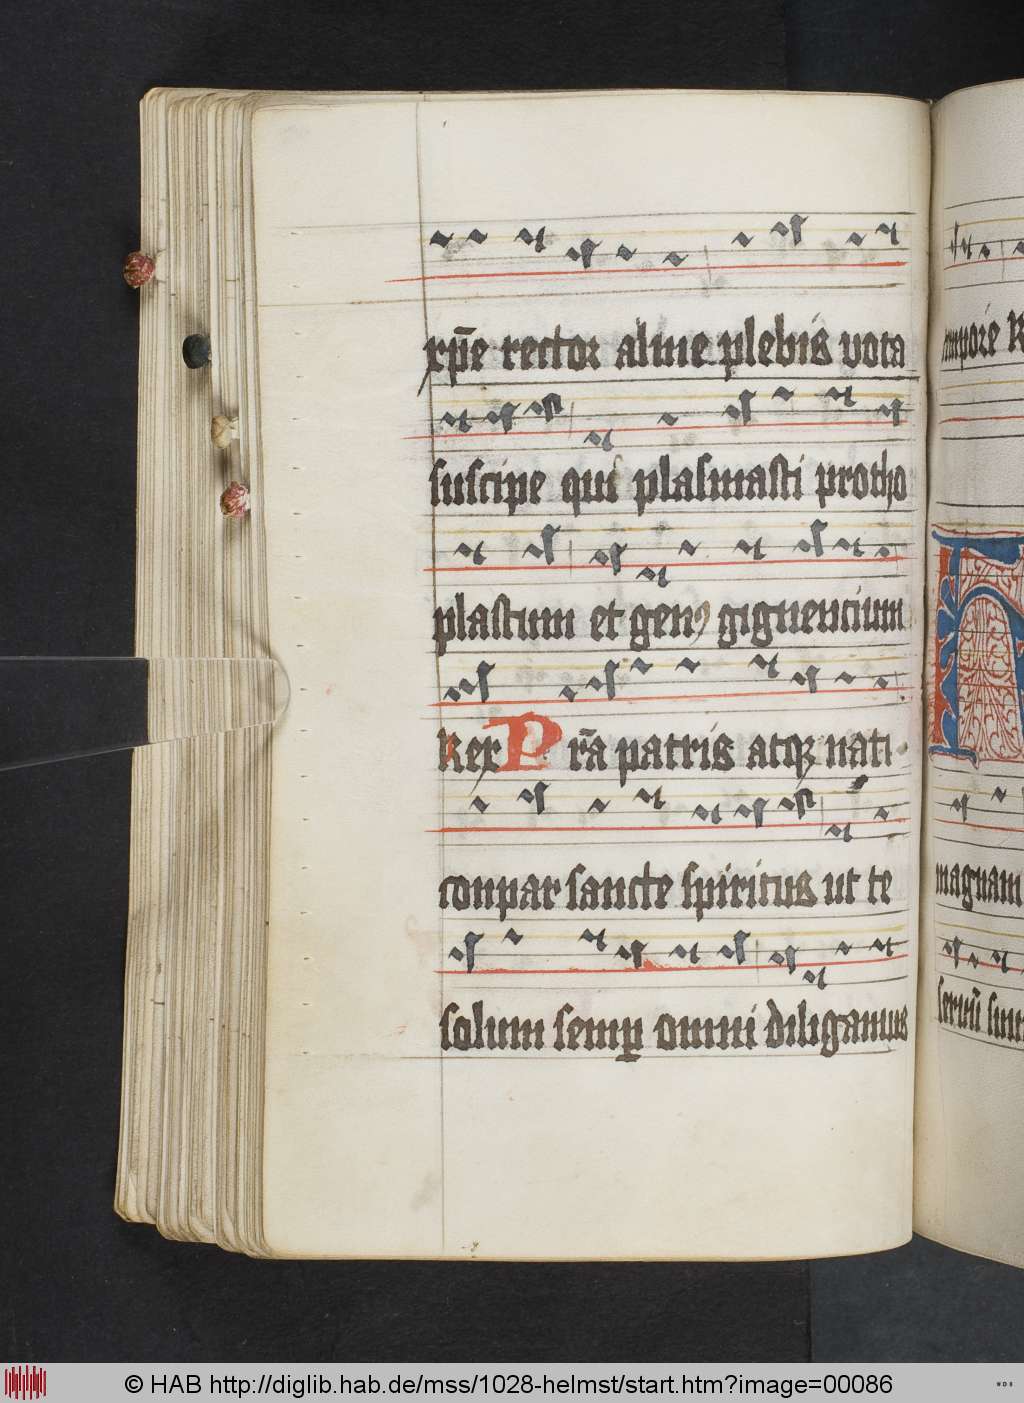 xp̄e rector alme plebis vota
suscipe qui plasmasti protho
plastum et genꝰ gignencium
Rex Pr̄a patris atqꝫ nati
conpar sancte spiritus ut te
solum semꝑ omni diligamus
magnam
© HAB http://diglib.hab.de/mss/1028-helmst/start.htm?image=00086